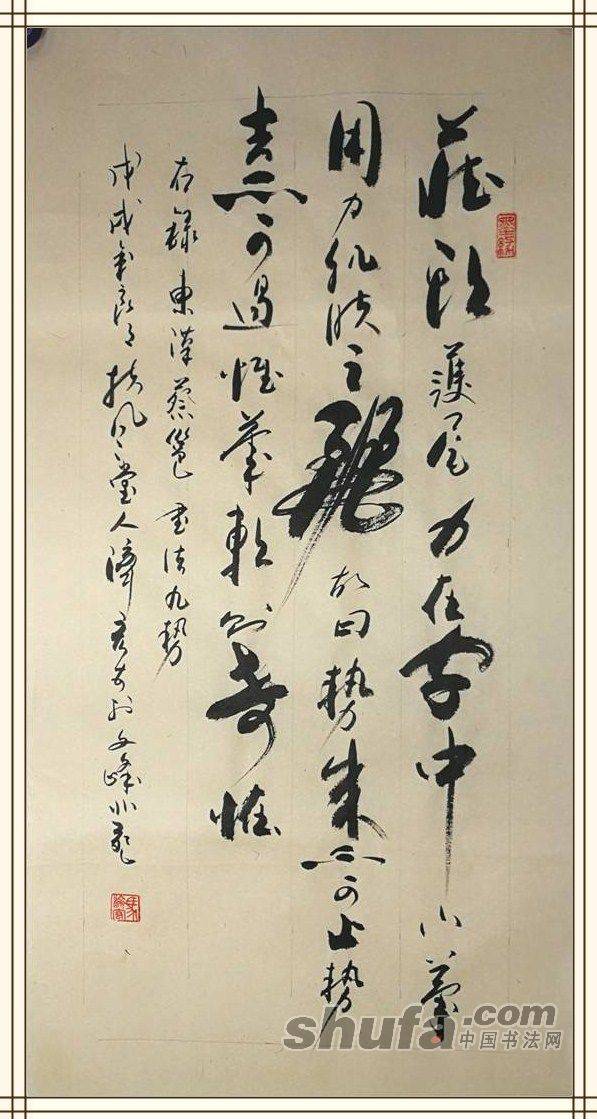 藏頭護尾力在字中下筆
用力肌膚之麗故曰勢來不可止勢
去不可遏惟筆軟則奇怪
右錄東漢蔡邕書法九勢
戊戌年 扶風堂人
shufa.com
中国书法网